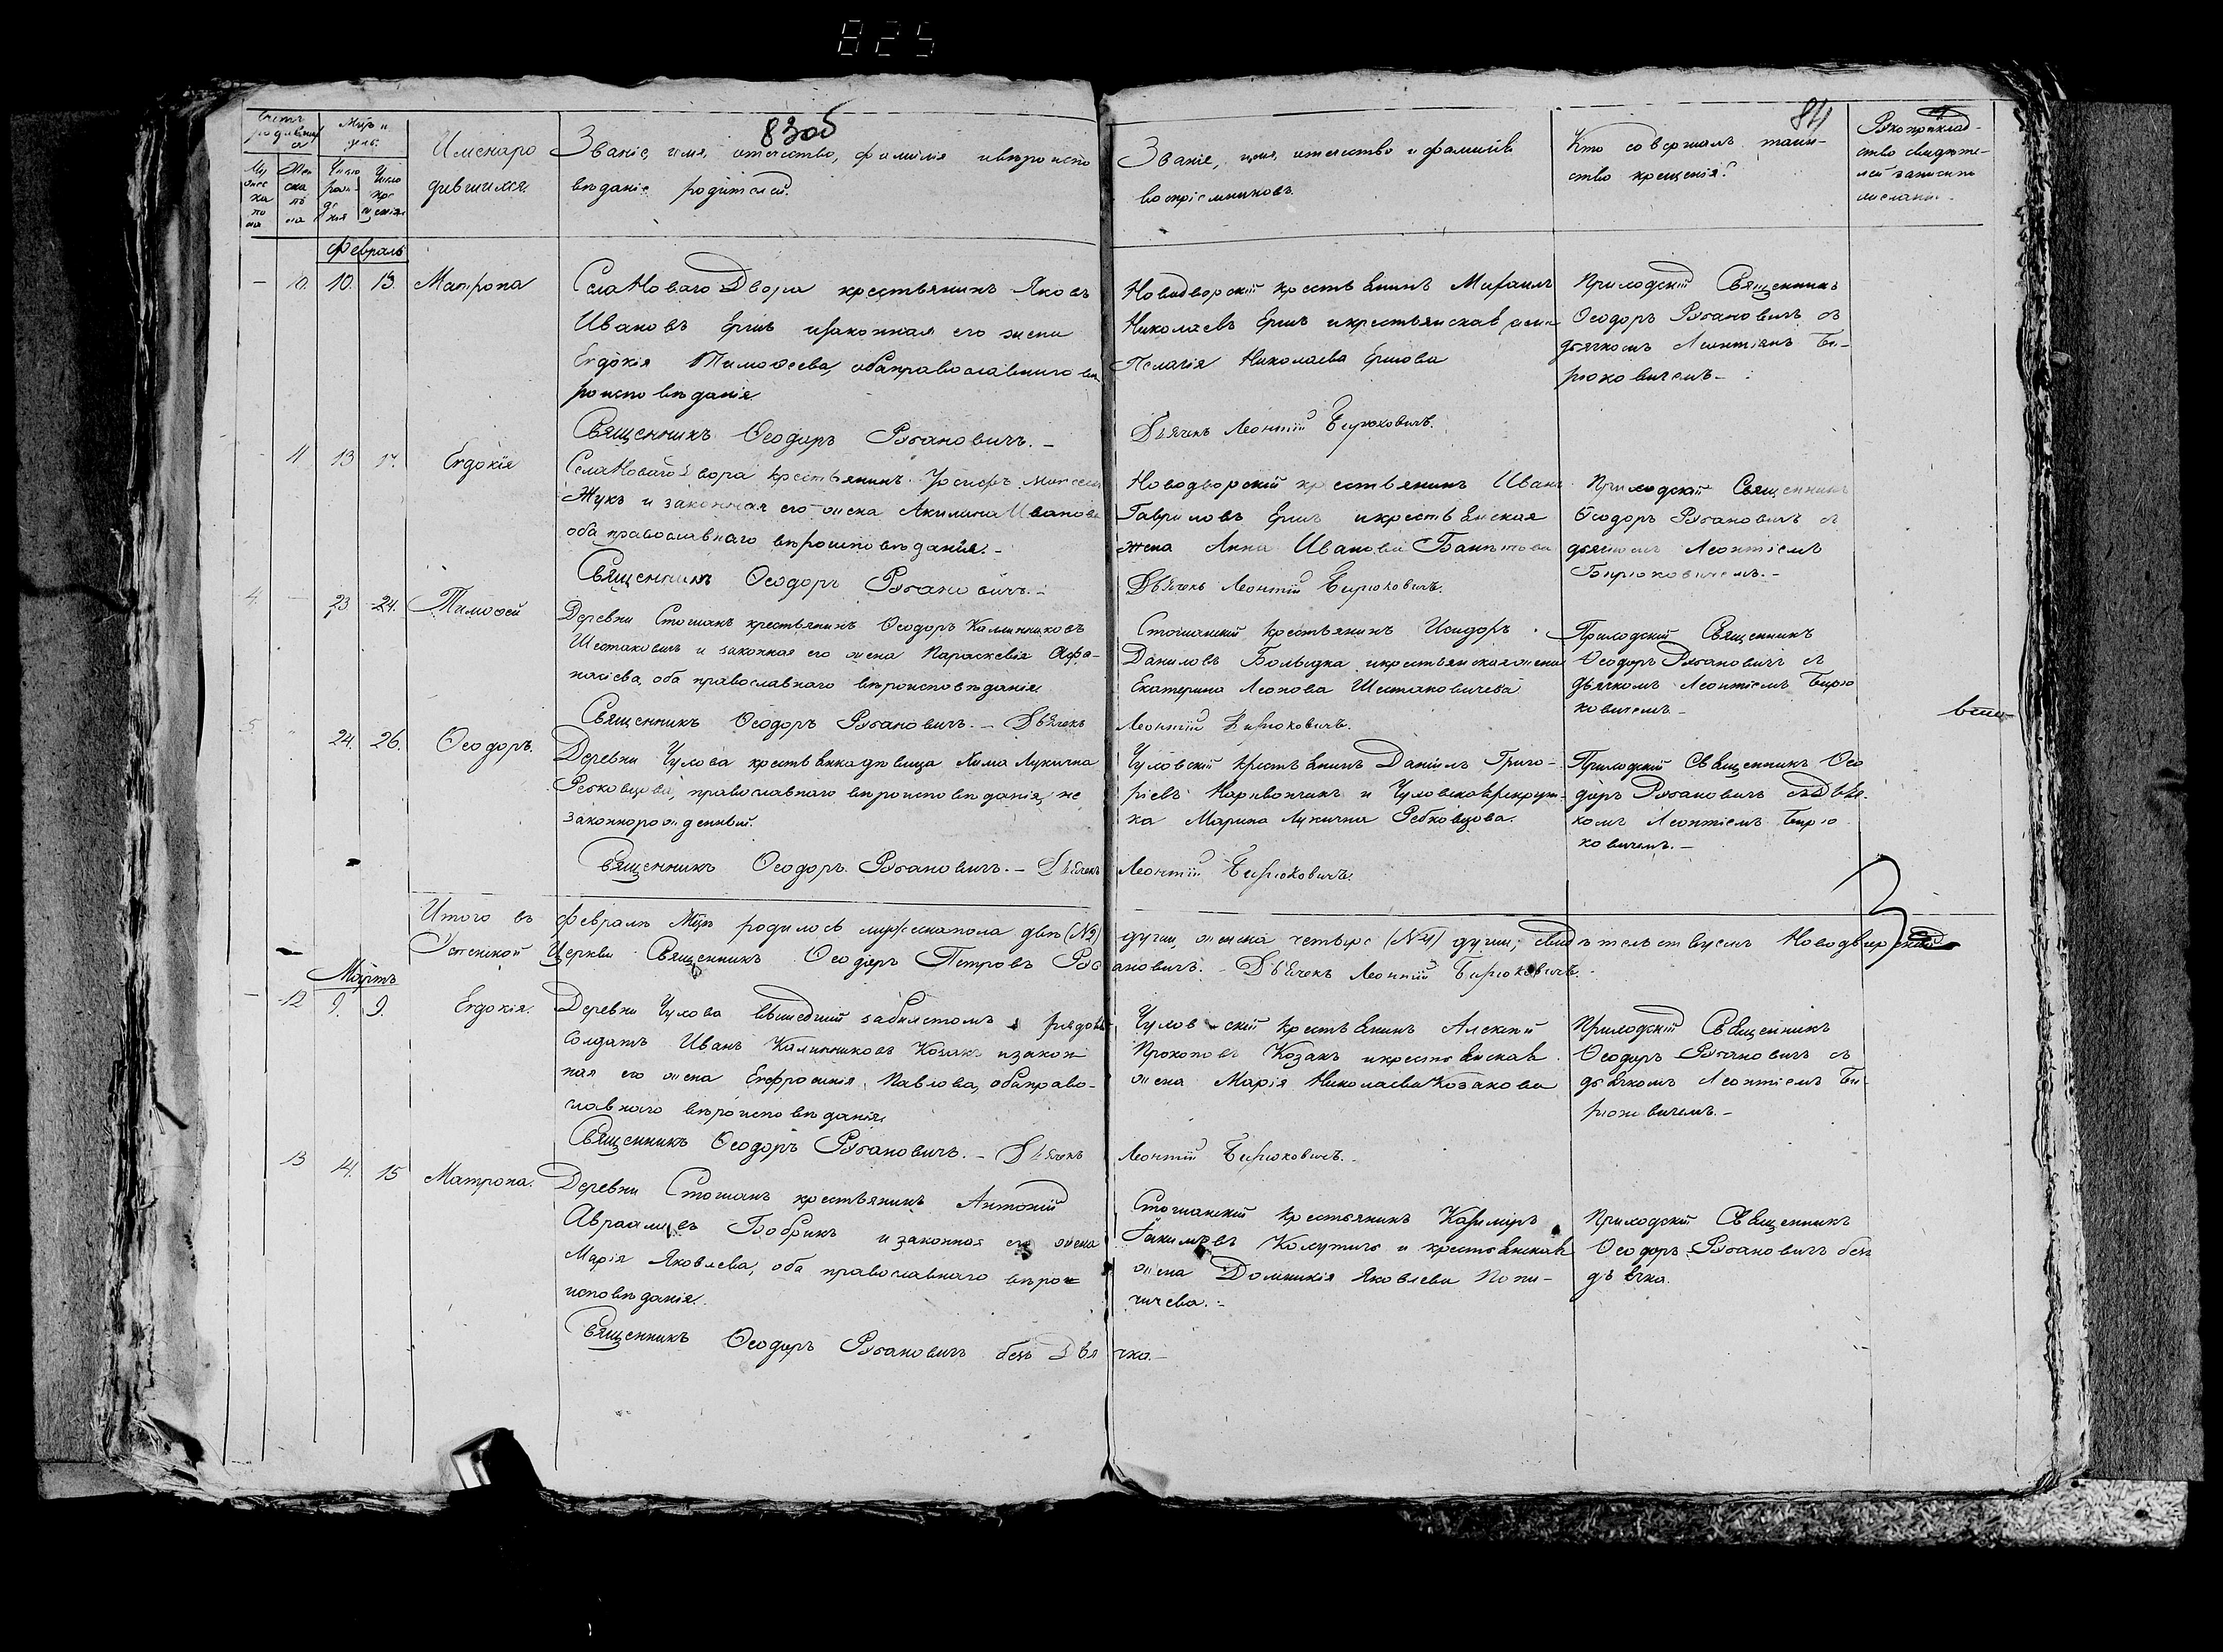 825
83об
84
Счетъ родившихся
Мцъ и день
Имена родившихся
Званіе, имя, отечество, фамилія и вѣроиспо
вѣданіе родителей.
Званіе, имя, отечество и фамилія
воспріемниковъ
Кто совершалъ таин-
ство крещенія?
Рукоприклад-
ство свидѣте-
лей записи по
желанію.
Февраль
10. 10. 13. Матрона
Села Новаго Двора крестьянинъ Яковъ
Ивановъ Ершъ и законная его жена
Евдокія Тимоѳеева, оба православнаго вѣ
роисповѣданія
Новодворскій крестьянинъ Михаилъ
Николаевъ Ершъ и крестьянская жена
Пелагія Николаева Ершова
Приходскій Священникъ
Ѳеодоръ Рубановичъ съ
дьячкомъ Леонтіемъ Би-
рюковичемъ.-
Священникъ Ѳеодоръ Рубановичъ.-
Дьячекъ Леонтій Бирюковичъ.
11 13 17. Евдокія
Села Новаго Двора крестьянинъ Іосифъ
Жукъ и законная его жена Акилина Иванова
оба православнаго вѣроисповѣданія.-
Новодворскій крестьянинъ Иванъ
Гавриловъ Ершъ и крестьянская
жена Анна Иванова
Приходскій Священникъ
Ѳеодоръ Рубановичъ съ
дьячкомъ Леонтіемъ
Бирюковичемъ.-
Священникъ Ѳеодоръ Рубановичъ.-
Дьячекъ Леонтій Бирюковичъ.
4. 23 24. Тимоѳей
Деревни Стошанъ крестьянинъ Ѳеодоръ Калинниковъ
Шестаковичъ и законная его жена Параскевія Аѳа-
насіева, оба православнаго вѣроисповѣданія
Стошанскій крестьянинъ Исидоръ
Даниловъ и крестьянская жена
Екатерина Леонова Шестаковичева
Приходскій Священникъ
Ѳеодоръ Рубановичъ съ
дьячкомъ Леонтіемъ Бирю
ковичемъ-
Священникъ Ѳеодоръ Рубановичъ.- Дьячекъ
Леонтій Бирюковичъ.
5 24. 26. Ѳеодоръ.
Деревни Чухова крестьянка дѣвица Лукична
Ребковцова, православнаго вѣроисповѣданія, не
законнорожденный.
Чуховскій крестьянинъ Даніилъ Григо-
ріевъ и Чуховская рекрут-
ка Марина Лукична Ребковцова.
Приходскій Священникъ Ѳео
доръ Рубановичъ съ дьяч-
комъ Леонтіемъ Бирю
ковичемъ.-
Священникъ Ѳеодоръ Рубановичъ.- Дьячекъ
Леонтій Бирюковичъ.
Итого въ февралѣ Мцѣ родилось мужеска пола двѣ (№2)
души, женска четыре (№4) души, свидѣтельствуемъ Новодворской
Успенской Церкви Священникъ Ѳеодоръ Петровъ Руб
ановичъ.- Дьячекъ Леонтій Бирюковичъ.
Мартъ
12 9. 9. Евдокія.
Деревни Чухова за билетомъ рядовый
солдатъ Иванъ Калинниковъ Козакъ и закон
ная его жена Евфросинія Павлова, оба право-
славнаго вѣроисповѣданія
Чуховскій крестьянинъ Алексій
Прокоповъ Козакъ и крестьянская
жена Марія Николаева Козакова
Приходскій Священникъ
Ѳеодоръ Рубановичъ съ
дьячкомъ Леонтіемъ Би-
рюковичемъ.-
Священникъ Ѳеодоръ Рубановичъ.- Дьячекъ
Леонтій Бирюковичъ.-
13 14. 15 Матрона.
Деревни Стошанъ крестьянинъ Антоній
Авраамьевъ Бобрикъ и законная его жена
Марія Яковлева, оба православнаго вѣро
исповѣданія.
Стошанскій крестьянинъ Казиміръ
и крестьянская
жена Доминикія Яковлева Попи-
чичева.-
Приходскій Священникъ
Ѳеодоръ Рубановичъ безъ
дьячка.
Священникъ Ѳеодоръ Рубановичъ безъ Дья
чка.-